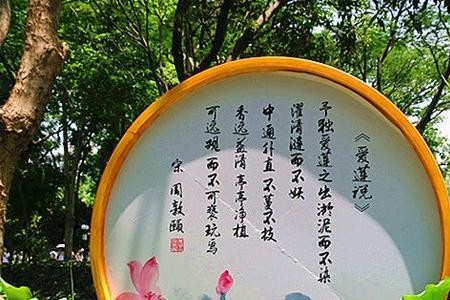 《爱莲说》
予独爱莲之出淤泥而不染
濯清涟而不妖
中通外直不蔓不枝
香远益清亭亭净植
可远观而不可亵玩焉
宋周敦颐